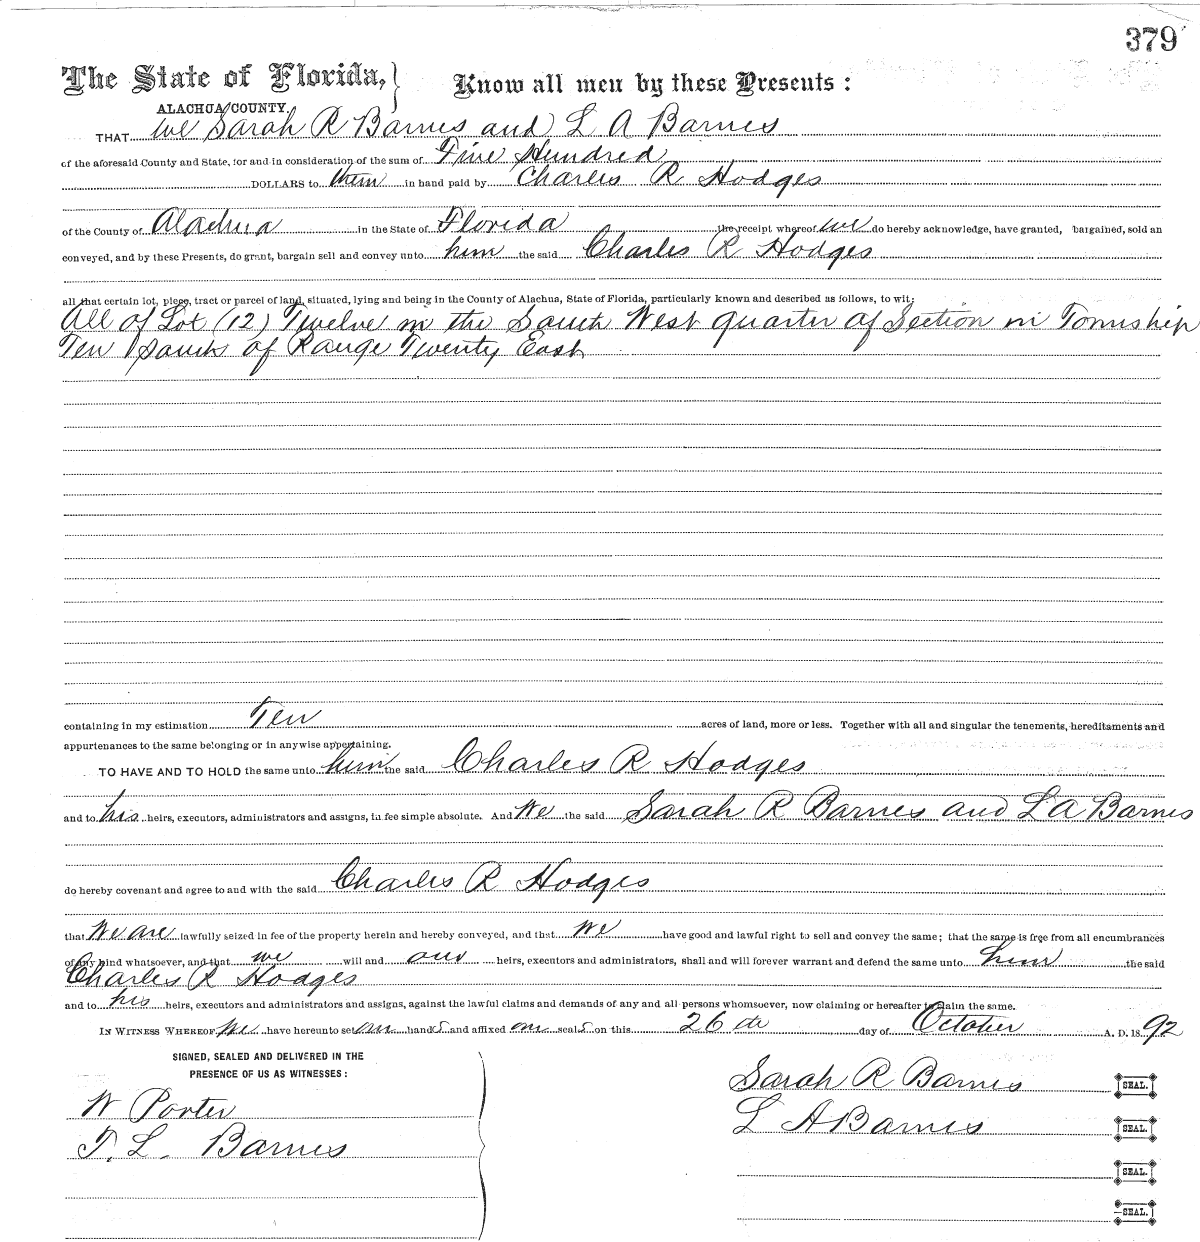 379
The State of Florida, } Know all men by these Presents :
ALACHUA COUNTY.
THAT we Sarah R Barnes and L A Barnes
of the aforesaid County and State, for and in consideration of the sum of Five Hundred
DOLLARS to them in hand paid by Charles R Hodges
of the County of Alachua in the State of Florida the receipt whereof we do hereby acknowledge, have granted, bargained, sold an
conveyed, and by these Presents, do grant, bargain sell and convey unto him the said Charles R Hodges
all that certain lot, piece, tract or parcel of land, situated, lying and being in the County of Alachua, State of Florida, particularly known and described as follows, to wit:
All of Lot (12) Twelve in the South West quarter of Section in Township
Ten South of Range Twenty East
containing in my estimation Ten acres of land, more or less. Together with all and singular the tenements, hereditaments and
appurtenances to the same belonging or in anywise appertaining.
TO HAVE AND TO HOLD the same unto him the said Charles R Hodges
and to his heirs, executors, administrators and assigns, in fee simple absolute. And We the said Sarah R Barnes and L A Barnes
do hereby covenant and agree to and with the said Charles R Hodges
that We are lawfully seized in fee of the property herein and hereby conveyed, and that We have good and lawful right to sell and convey the same; that the same is free from all encumbrances
of any kind whatsoever, and that we will and our heirs, executors and administrators, shall and will forever warrant and defend the same unto him the said
Charles R Hodges
and to his heirs, executors and administrators and assigns, against the lawful claims and demands of any and all persons whomsoever, now claiming or hereafter to claim the same.
IN WITNESS WHEREOF we have hereunto set our hands and affixed our seals on this 26th day of October A. D. 1892
SIGNED, SEALED AND DELIVERED IN THE
PRESENCE OF US AS WITNESSES :
Sarah R Barnes SEAL.
W Porter
L A Barnes SEAL.
T. L. Barnes
SEAL.
SEAL.